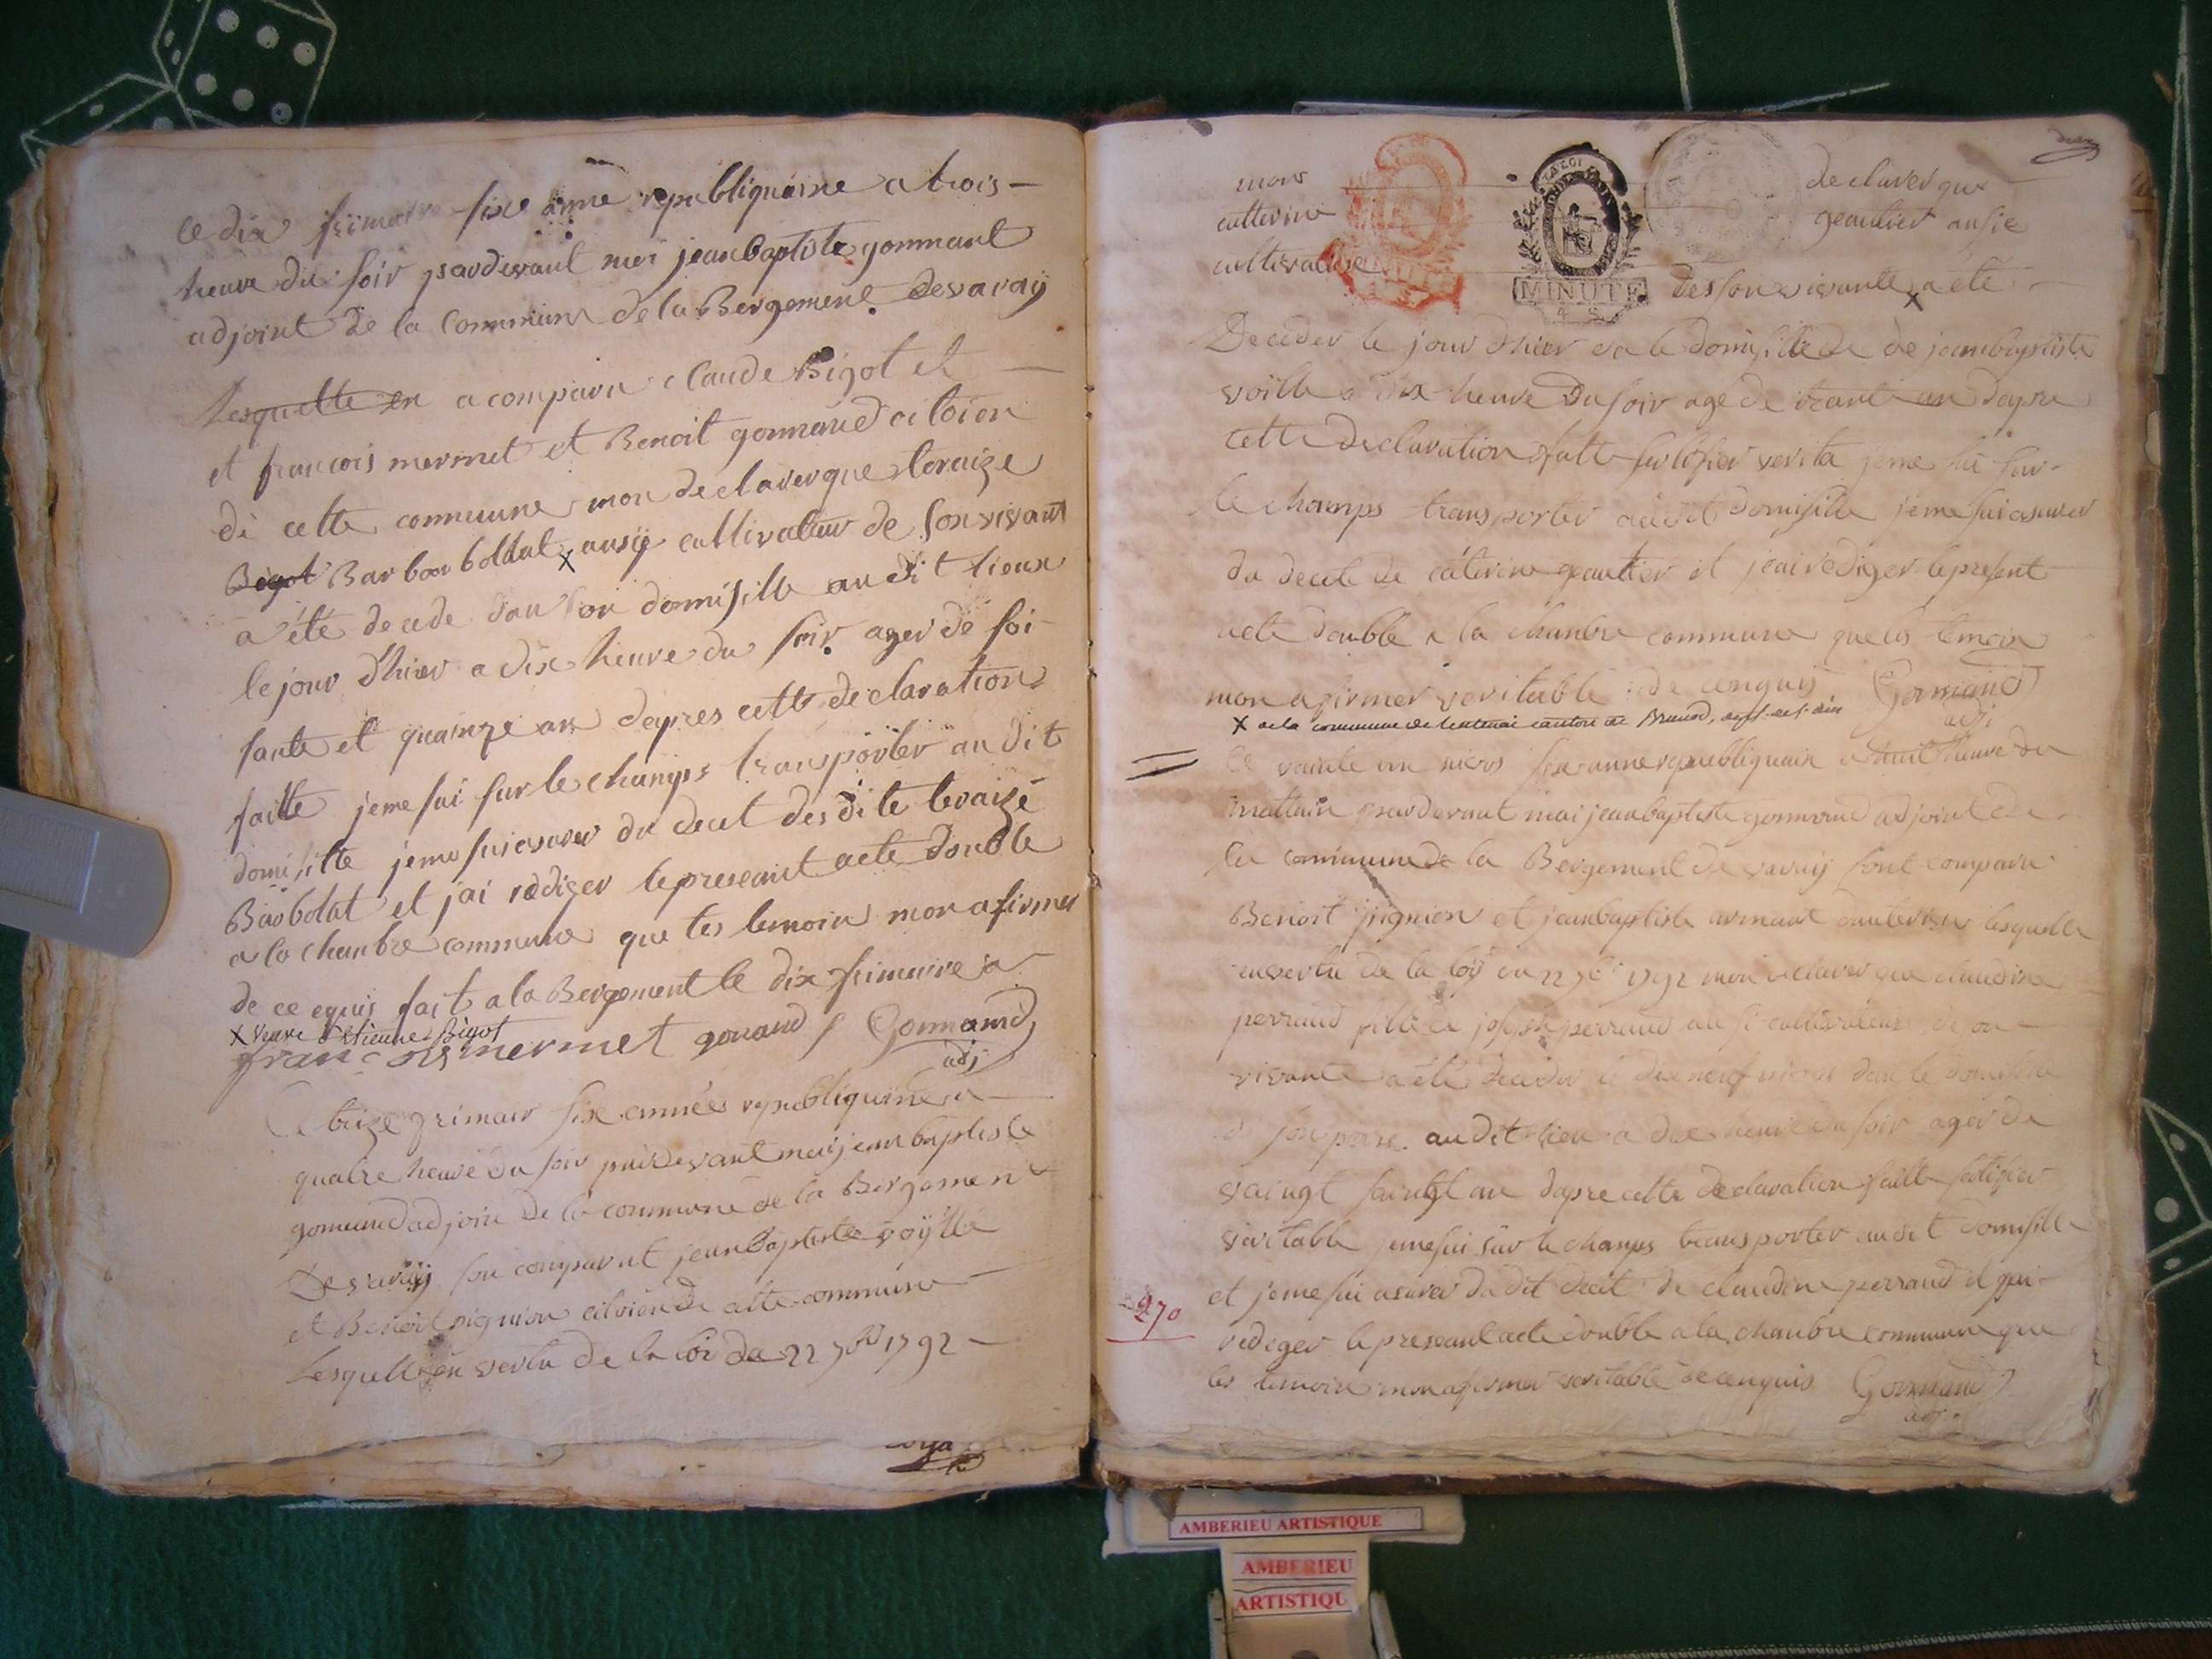 Le dix frimaire sixe anné republiquaine a trois
heure du soir pardevant moi jeanbaptiste gonnant
adjoint de la Commune de la Bergement. de varaÿ
lesquelle en a comparu claude Bigot et
et francois mermet et Benoit gonnand citoien
di cette commune mon declarer que teraize
Bigot Barboo boldat x ausÿ cultivateur de son vivant
a été decede dan son domisille au dit lieux
le jour d'hier a dix heure du soir. ager de soi
sante et quainze an d'apres cette declaration
faitte jeme sui sur le champs transporter au dit
domisille jeme sui asurer du decet des dite teraize
Barbolat et jai rediger le preseant acte double
a la chanbre commune que les temoin mon afirmer
de ce equis fait a la Bergement le dix frimaire a
x veuve d'Etienne Bigot
francois mermet gonand Gonnand
adj
Le treize frimair sixe année republiquaine a
quatre heure du soir pardevant moi jean baptiste
gonnand adjoin de la commune de la Bergement
De varaÿ son comparut jeanbaptiste voÿlle
et Benoit pignion citoien de cette commune
Lesquelle en vertu de la loi da 22 7bre 1792
mon declarer que
catterine geautier ausie
cultivatrice des son vivante x a eté
MINUTE
Deceder le jour d'hier da le domisille de jeanbaptiste
voille a dix heure du soir age de trante an dapre
cette declaration jeme sui sur
le champs transporter au dit domisille jeme sui asurer
du decet de caterine geautier et jeai rediger le present
acte double a la chanbre commune que les temoin
mon afirmer veritable de cenquis Gonnand
adj
x de la commune de
Le vainte un nivos sixe anne republiquain a huit heure du
mattain pardevant moi jeanbaptiste gonnand adjoint de
la commune de la Bergement de varaÿ sont comparu
Benoit pignion et jeanbaptiste lesquelle
en vertu de la loÿ du 22 7br 1792 mon declarer que claudine
perraud fille de joseph perraud ausi cultivateur de son
vivante a été deceder le dix neuf nivos dans le domisille
de son pere au dit lieu a dix heure du soir ager de
vaingt saingt an dapre cette declaration faitte
veritable jeme sui sur le champs transporter au dit domisille
et jeme sui asurer du dit decet de claudine perraud et jeai
rediger le preseant acte double a la chanbre commune que
les temoin mon afirmer veritable de cenquis Gonnand
adj.
270
AMBERIEU ARTISTIQUE
AMBERIEU
ARTISTIQU